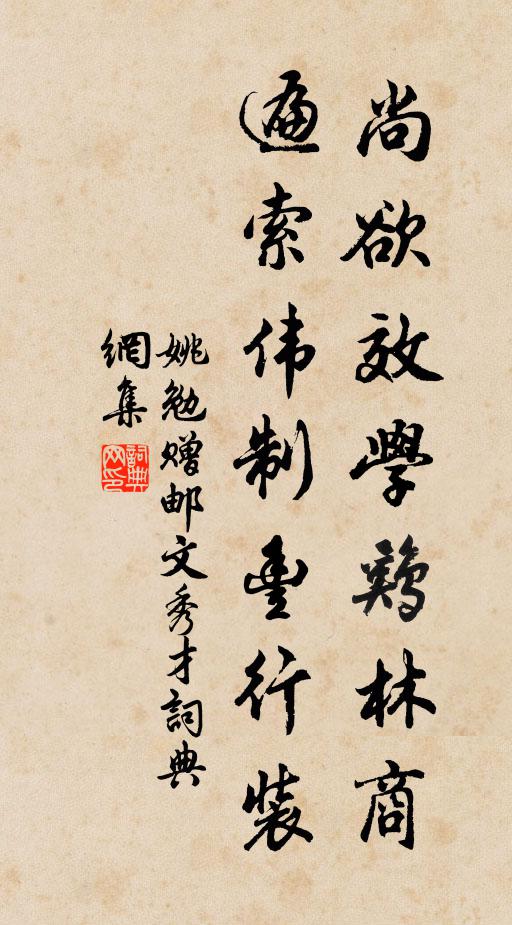 尚欲效學鷄林商
遍索伟制豊行裝
姚勉赠邮文秀才詞典
網集
詞典
网印